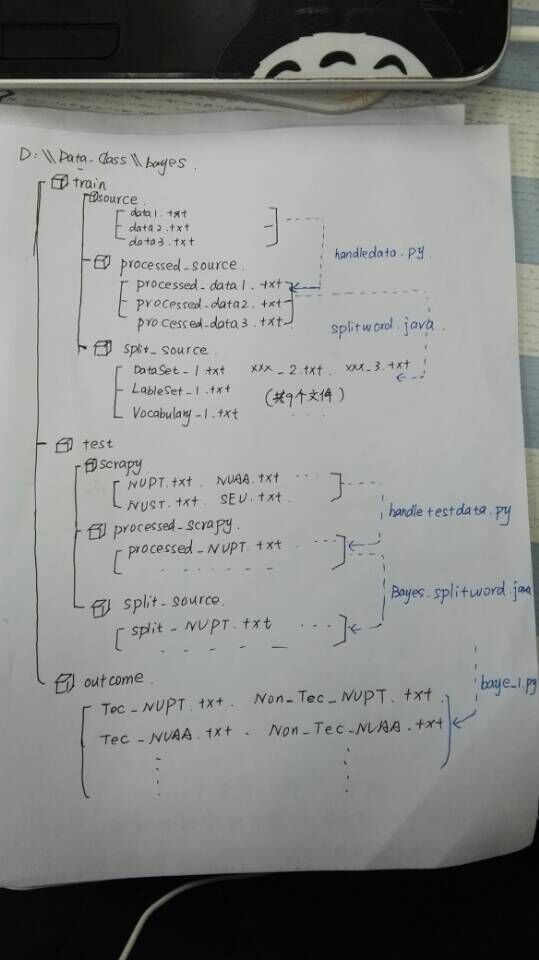 D:\\Data_Class\\bayes.
train
source
data1.txt
data2.txt
data3.txt
handledata.py.
processed_source.
processed_data1.txt
processed_data2.txt
processed_data3.txt
splitword.java.
split_source.
DataSet_1.txt xxx_2.txt. xxx_3.txt
LableSet_1.txt (共9个文件)
Vocabulary_1.txt ...
test
scrapy
NUPT.txt. NUAA.txt ...
NUST.txt. SEU.txt.
handletestdata.py
processed_scrapy.
processed_NUPT.txt. ...
Bayes.splitword.java
split_source.
split_NUPT.txt ...
outcome.
baye_1.py
Tec_NUPT.txt. Non_Tec_NUPT.txt.
Tec_NUAA.txt. Non_Tec_NUAA.txt